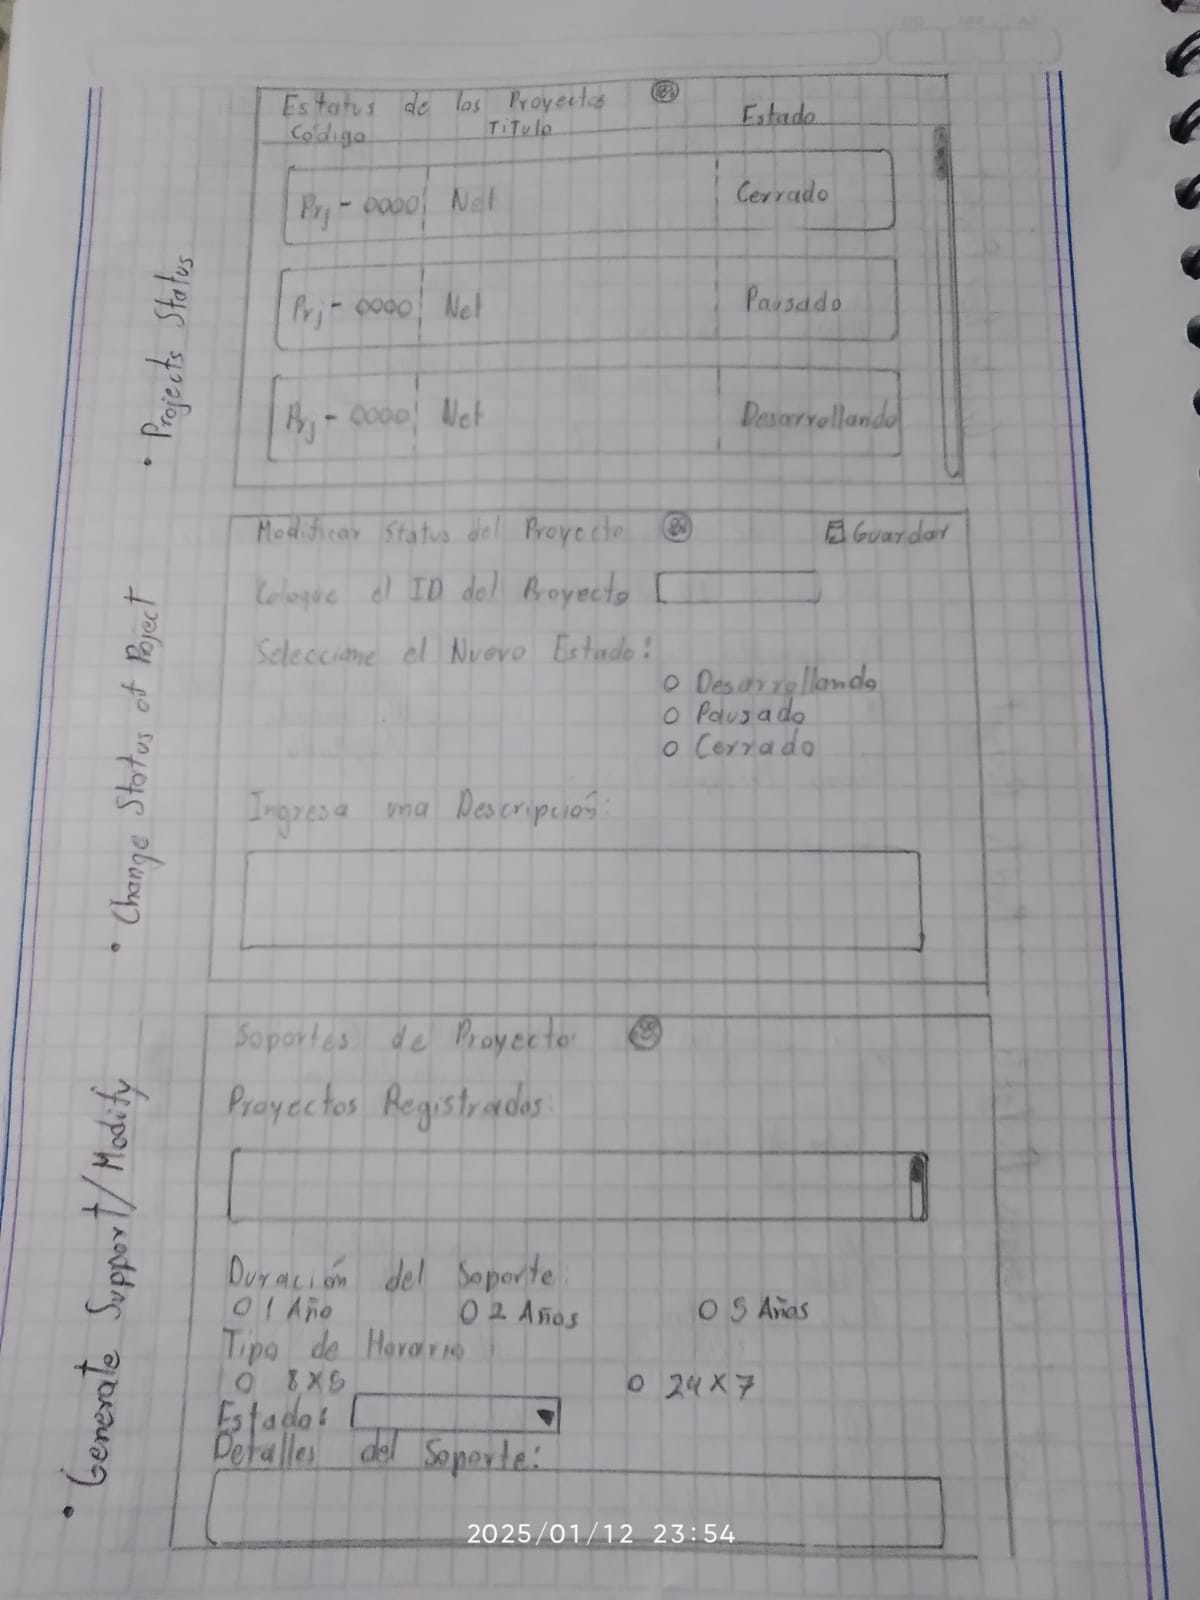 Estatus de los Proyectos
Código Titulo Estado
Prj - 0000 Net Cerrado
Prj - 0000 Net Pausado
Prj - 0000 Net Desarrollando
• Projects Status
Modificar Status del Proyecto Guardar
Coloque el ID del Proyecto
Seleccione el Nuevo Estado:
O Desarrollando
O Pausado
O Cerrado
Ingresa una Descripción:
• Change Status of Poject
Soportes de Proyecto
Proyectos Registrados:
Duración del Soporte:
O 1 Año O 2 Años O 5 Años
Tipo de Horario:
O 8X5 O 24X7
Estado:
Detalles del Soporte:
• Generate Support/Modify
2025/01/12 23:54